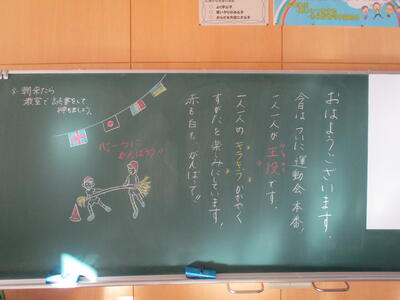 おはようございます。
今日は ついに 運動会 本番。
一人一人が 主役 です。
一人一人の キラキラ かがやく
すがたを 楽しみにしています。
赤も白も がんばって!!
心一つに
がんばろう!!
8:朝来たら
教室で 読書をして
待ちましょう。